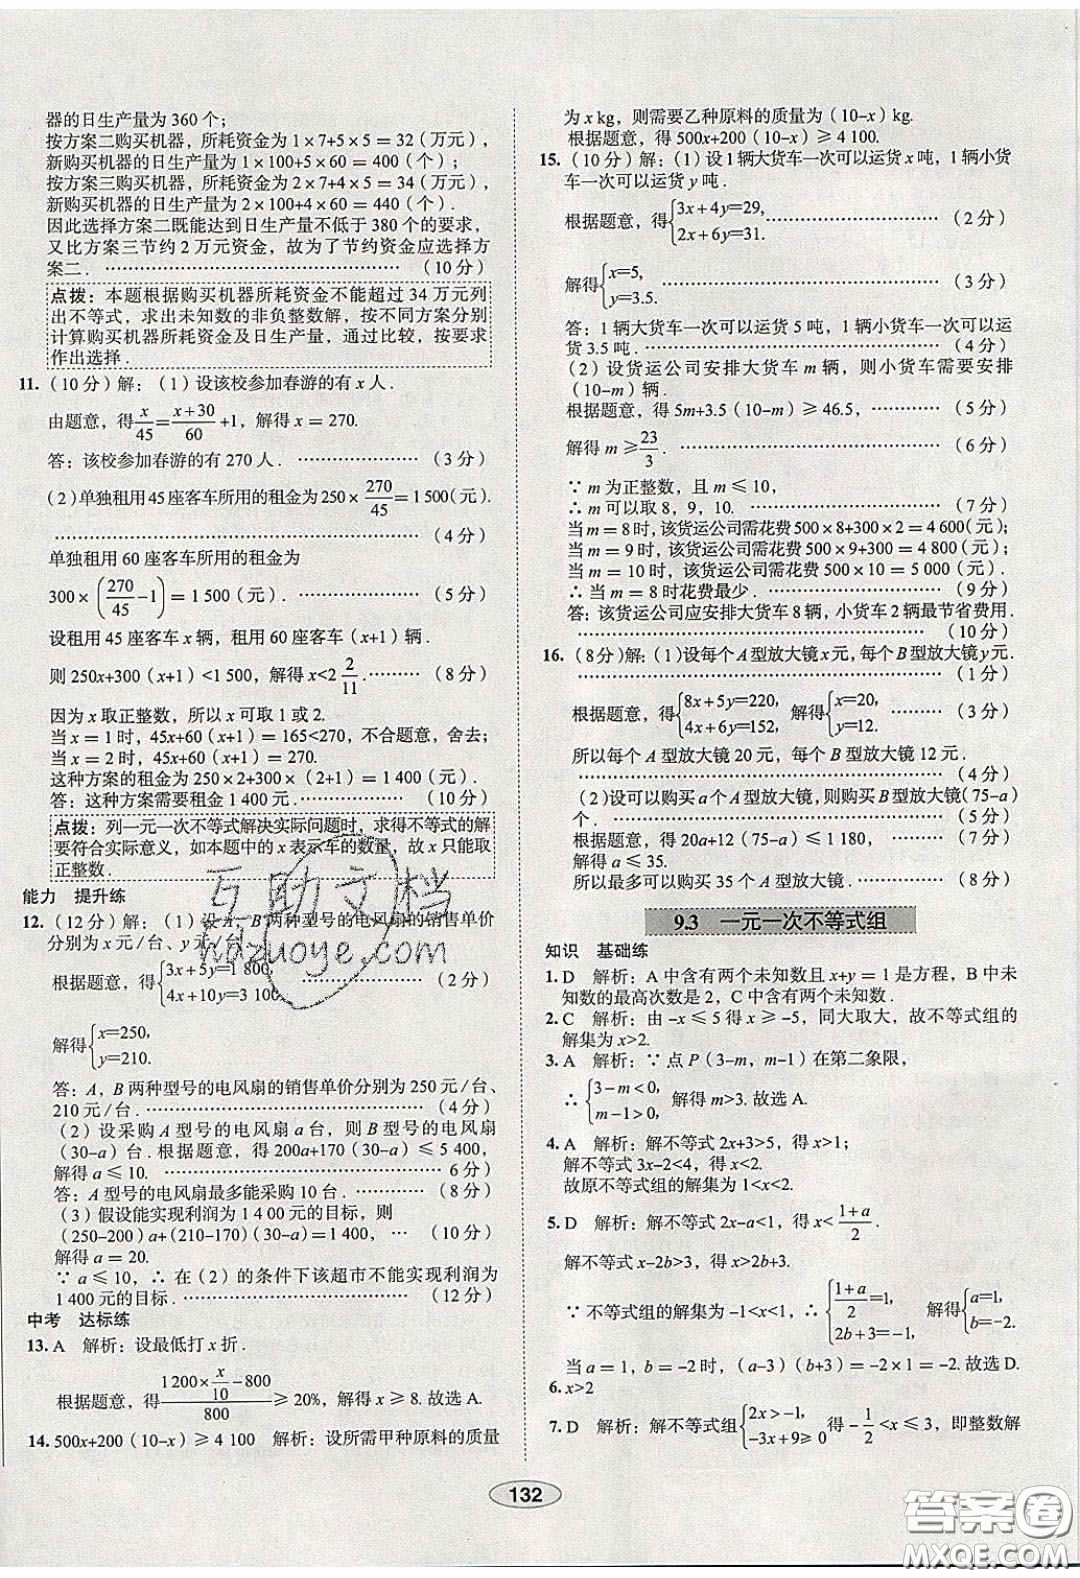 器的日生产量为 360 个；
按方案二购买机器，所耗资金为 1×7+5×5＝32（万元），
新购买机器的日生产量为 1×100+5×60＝400（个）；
按方案三购买机器，所耗资金为 2×7+4×5＝34（万元），
新购买机器的日生产量为 2×100+4×60＝440（个）．
因此选择方案二既能达到日生产量不低于 380 个的要求，
又比方案三节约 2 万元资金，故为了节约资金应选择方
案二．……………………………………（10 分）
点拨：本题根据购买机器所耗资金不能超过 34 万元列
出不等式，求出未知数的非负整数解，按不同方案分别
计算购买机器所耗资金及日生产量，通过比较，按要求
作出选择．
11.（10 分）解：（1）设该校参加春游的有 x 人．
由题意，得 x/45＝(x+30)/60+1，解得 x＝270.
答：该校参加春游的有 270 人．………………（3 分）
（2）单独租用 45 座客车所用的租金为 250×270/45＝1 500（元）．
……………………………………（4 分）
单独租用 60 座客车所用的租金为
300×(270/45-1)＝1 500（元）．………………（5 分）
设租用 45 座客车 x 辆，租用 60 座客车（x+1）辆．
则 250x+300（x+1）<1 500，解得 x<2 2/11．………（8 分）
因为 x 取正整数，所以 x 可取 1 或 2.
当 x＝1 时，45x+60（x+1）＝165<270，不合题意，舍去；
当 x＝2 时，45x+60（x+1）＝270.
这种方案的租金为 250×2+300×（2+1）＝1 400（元）．
答：这种方案需要租金 1 400 元．……………（10 分）
点拨：列一元一次不等式解决实际问题时，求得不等式的解
要符合实际意义，如本题中的 x 表示车的数量，故 x 只能取
正整数．
能力　提升练
12.（12 分）解：（1）设 A，B 两种型号的电风扇的销售单价
分别为 x 元/台、y 元/台．
根据题意，得{3x+5y＝1 800，4x+10y＝3 100.………（2 分）
解得{x＝250，y＝210.
答：A，B 两种型号的电风扇的销售单价分别为 250 元/台、
210 元/台．……………………………………（4 分）
（2）设采购 A 型号的电风扇 a 台，则 B 型号的电风扇
（30-a）台．根据题意，得 200a+170（30-a）≤5 400，
解得 a≤10.……………………………………6 分）
答：A 型号的电风扇最多能采购 10 台．………（8 分）
（3）假设能实现利润为 1 400 元的目标，则
（250-200）a+（210-170）（30-a）＝1 400，…（10 分）
解得 a＝20.
∵ a≤10，∴ 在（2）的条件下该超市不能实现利润为
1 400 元的目标．……………………………（12 分）
中考　达标练
13. A　解析：设最低打 x 折．
根据题意，得 (1200×x/10-800)/800≥20%，解得 x≥8. 故选 A.
14. 500x+200（10-x）≥4 100　解析：设所需甲种原料的质量
为 x kg，则需要乙种原料的质量为（10-x）kg.
根据题意，得 500x+200（10-x）≥4 100.
15.（10 分）解：（1）设 1 辆大货车一次可以运货 x 吨，1 辆小货
车一次可以运货 y 吨．
根据题意，得{3x+4y＝29，2x+6y＝31.……………………（2 分）
解得{x＝5，y＝3.5.……………………………………（3 分）
答：1 辆大货车一次可以运货 5 吨，1 辆小货车一次可以运
货 3.5 吨．……………………………………（4 分）
（2）设货运公司安排大货车 m 辆，则小货车需要安排
（10-m）辆．
根据题意，得 5m+3.5（10-m）≥46.5，…………（5 分）
解得 m≥23/3．……………………………………（6 分）
∵ m 为正整数，且 m≤10，
∴ m 可以取 8，9，10. ……………………………（7 分）
当 m＝8 时，该货运公司需花费 500×8+300×2＝4 600（元）；
当 m＝9 时，该货运公司需花费 500×9+300＝4 800（元）；
当 m＝10 时，该货运公司需花费 500×10＝5 000（元）．
∴ 当 m＝8 时花费最少．………………………（9 分）
答：该货运公司应安排大货车 8 辆，小货车 2 辆最节省费用．
……………………………………………（10 分）
16.（8 分）解：（1）设每个 A 型放大镜 x 元，每个 B 型放大镜 y 元．
……………………………………………（1 分）
根据题意，得{8x+5y＝220，4x+6y＝152，解得{x＝20，y＝12.………（3 分）
所以每个 A 型放大镜 20 元，每个 B 型放大镜 12 元．
……………………………………………（4 分）
（2）设可以购买 a 个 A 型放大镜，则购买 B 型放大镜（75-a）
个．……………………………………………（5 分）
根据题意，得 20a+12（75-a）≤1 180，…………（7 分）
解得 a≤35.
所以最多可以购买 35 个 A 型放大镜．…………（8 分）
9.3　一元一次不等式组
知识　基础练
1. D　解析：A 中含有两个未知数且 x+y＝1 是方程，B 中未
知数的最高次数是 2，C 中含有两个未知数．
2. C　解析：由 -x≤5 得 x≥-5，同大取大，故不等式组的
解集为 x>2.
3. A　解析：∵ 点 P（3-m，m-1）在第二象限，
∴{3-m<0，m-1>0，解得 m>3. 故选 A.
4. A　解析：解不等式 2x+3>5，得 x>1；
解不等式 3x-2<4，得 x<2.
故原不等式组的解集为 1<x<2.
5. D　解析：解不等式 2x-a<1，得 x<(1+a)/2．
解不等式 x-2b>3，得 x>2b+3.
∵ 不等式组的解集为 -1<x<1，∴{(1+a)/2＝1，2b+3＝-1，解得{a＝1，b＝-2.
当 a＝1，b＝-2 时，（a-3）（b+3）＝-2×1＝-2. 故选 D.
6. x>2
7. D　解析：解不等式组{2x>-1，-3x+9≥0 得 -1/2<x≤3，即整数解
132
互助文档
hdzuoye.com
答案圈
MXQE.COM